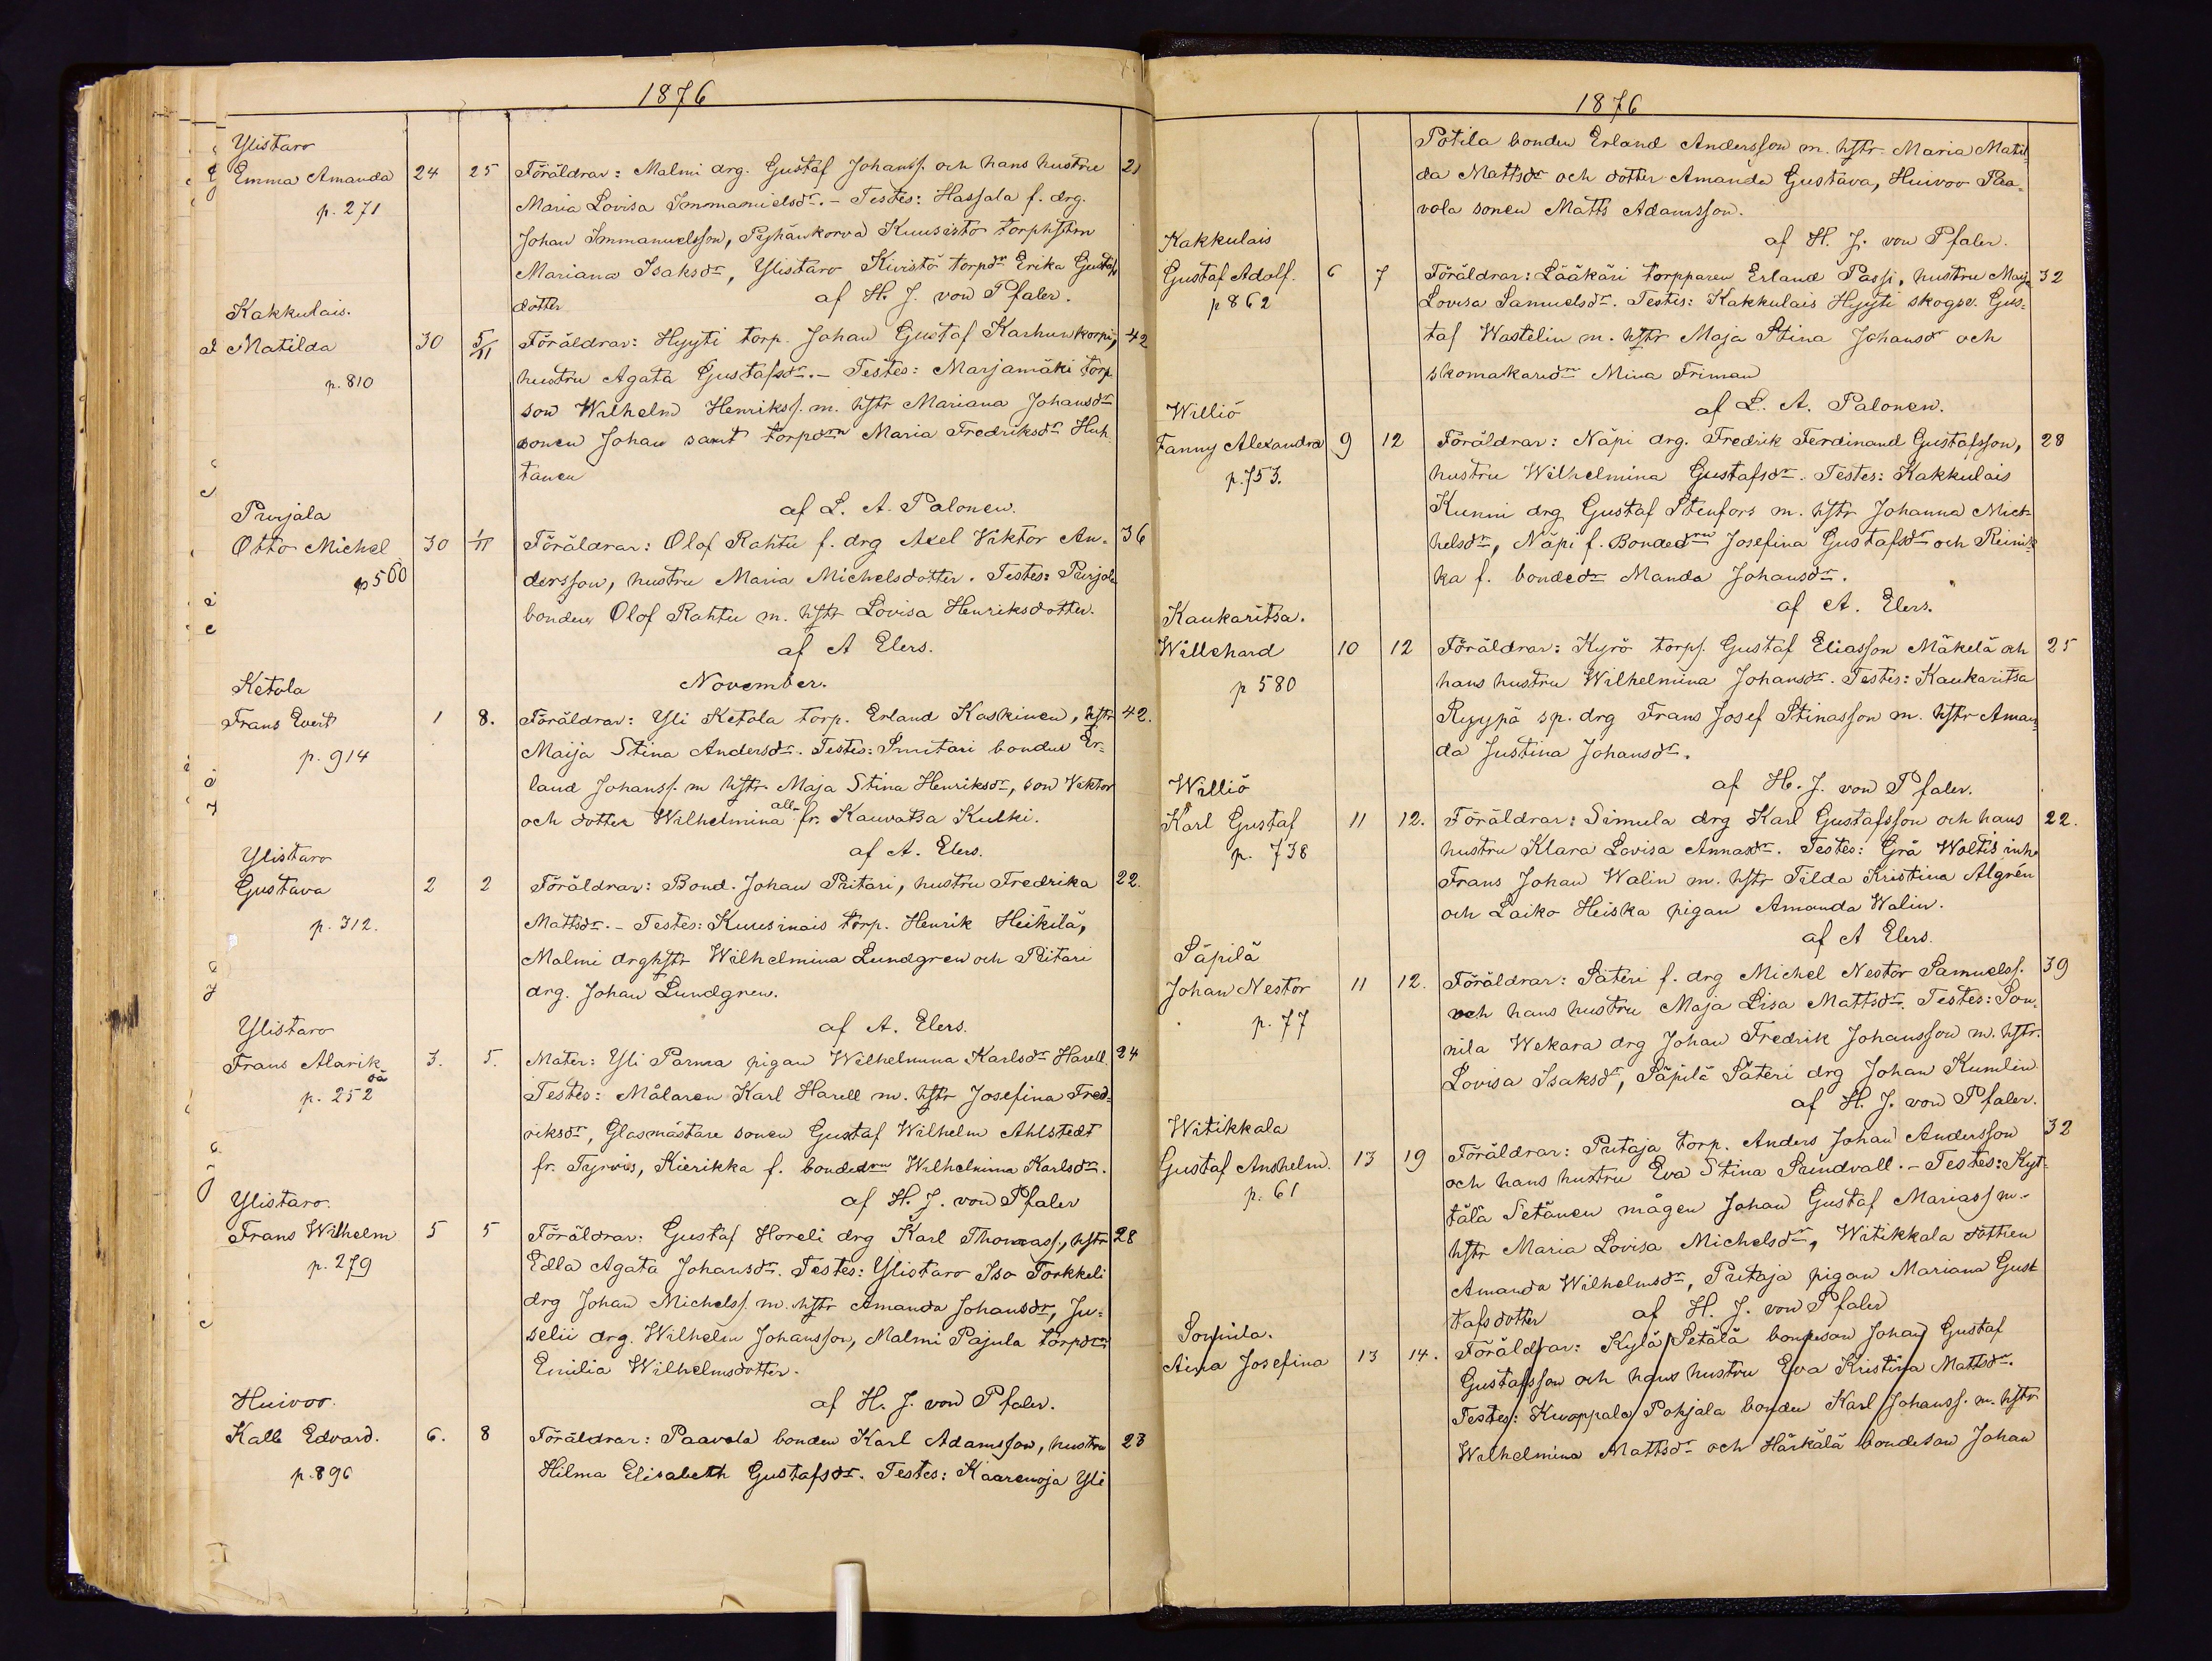 1876
Ylistaro
Emma Amanda 24 25 Föräldrar: Malmi drg. Gustaf Johanss. och hans hustru 21
p. 271 Maria Lovisa Immanuelsdr. – Testes: Hassala f. drg.
Johan Immanuelsson, Pyhänkorva Kuusisto torphstrn
Mariana Isaksdr, Ylistaro Kivistö torpdr Erika Gustafs
dotter af H. J. von Pfaler.
Kakkulais.
Matilda 30 5/11 Föräldrar: Hyyti torp. Johan Gustaf Karhunkorpi, 42
p. 810 hustru Agata Gustafsdr. – Testes: Marjamäki torp.
son Wilhelm Henrikss. m. hstr Mariana Johansdr
sonen Johan samt torpdrn Maria Fredriksdr Huh-
tanen
af L. A. Palonen.
Purjala
Otto Michel 30 1/11 Föräldrar: Olof Rahtu f. drg Axel Viktor An- 36
p 560 dersson, hustru Maria Michelsdotter. Testes: Purjala
bonden Olof Rahtu m. hstr Lovisa Henriksdotter.
af A Elers.
November.
Ketola
Frans Evert 1 8. Föräldrar: Yli Ketola torp. Erland Koskinen, hstr 42.
p. 914 Maija Stina Andersdr. Testes: Suutari bonden Er-
land Johanss. m hstr. Maja Stina Henriksdr, son Viktor
och dotter Wilhelmina alla fr. Kauvatsa Kulki.
af A. Elers.
Ylistaro
Gustava 2 2 Föräldrar: Bond. Johan Pritari, hustru Fredrika 22.
p. 312. Mattsdr. – Testes: Kuusinais torp. Henrik Heikilä,
Malmi drghstr Wilhelmina Lundgren och Pritari
drg. Johan Lundgren.
af A. Elers.
Ylistaro
Frans Alarik 3. 5. Mater: Yli Parma pigan Wilhelmina Karlsdr Harell. 24
oä
p. 252 Testes: Målaren Karl Harell m. hstr Josefina Fred-
riksdr, Glasmästare sonen Gustaf Wilhelm Ahlstedt
fr. Tyrvis, Kierikka f. bondedrn Wilhelmina Karlsdr.
af H. J. von Pfaler
Ylistaro.
Frans Wilhelm 5 5 Föräldrar: Gustaf Horeli drg Karl Thomass., hstr 28
p. 279 Edla Agata Johansdr. Testes: Ylistaro Iso Torkkeli
drg Johan Michelss. m. hstr Amanda Johansdr, Ju-
selii drg. Wilhelm Johansson, Malmi Pajula torpdrn
Emilia Wilhelmsdotter.
af H. J. von Pfaler.
Huivoo.
Kalle Edvard. 6. 8 Föräldrar: Paavola bonden Karl Adamsson, hustru 23
p. 896 Hilma Elisabeth Gustafsdr. Testes: Kaarenoja Yli
1876
Potila bonden Erland Andersson m. hstr. Maria Matil-
da Mattsdr och dotter Amanda Gustava, Huivoo Paa-
vola sonen Matts Adamsson.
af H. J. von Pfaler.
Kakkulais
Gustaf Adolf. 6 7 Föräldrar: Lääkäri torpparen Erland Passi, hustru Maja 32
p 862 Lovisa Samuelsdr. Testes: Kakkulais Hyyti skogsv. Gus-
taf Wastelin m. hstr Maja Stina Johansdr och
skomakaredrn Mina Friman
af L. A. Palonen.
Williö
Fanny Alexandra 9 12 Föräldrar: Näpi drg. Fredrik Ferdinand Gustafsson, 28
p. 753. hustru Wilhelmina Gustafsdr. Testes: Kakkulais
Kunni drg Gustaf Stenfors m. hstr Johanna Mic-
helsdr, Näpi f. Bondedrn Josefina Gustafsdr och Reinik-
ka f. bondedr Manda Johansdr.
af A. Elers.
Kaukaritsa.
Willehard 10 12 Föräldrar: Kyrö torps. Gustaf Eliasson Mäkelä och 25
p 580 hans hustru Wilhelmina Johansdr. Testes: Kaukaritsa
Ryypö sp. drg Frans Josef Stinasson m. hstr Aman-
da Justina Johansdr.
af H. J. von Pfaler.
Williö
Karl Gustaf 11 12. Föräldrar: Simula drg Karl Gustafsson och hans 22.
p. 738 hustru Klara Lovisa Annasdr. Testes: Grå Woltis inh.
Frans Johan Walin m. hstr Tilda Kristina Algrén
och Laiko Heiska pigan Amanda Walin.
af A Elers.
Säpilä
Johan Nestor 11 12. Föräldrar: Säteri f. drg Michel Nestor Samuelss. 39
p. 77 och hans hustru Maja Lisa Mattsdr. Testes: Son-
nila Wekara drg Johan Fredrik Johansson m. hstr.
Lovisa Isaksdr, Säpilä Säteri drg Johan Kumlin
af H. J. von Pfaler.
Witikkala
Gustaf Anshelm. 13 19 Föräldrar: Putaja torp. Anders Johan Andersson 32
p. 61 och hans hustru Eva Stina Sundvall. – Testes: Kyt-
tälä Setänen mågen Johan Gustaf Mariass m.
hstr Maria Lovisa Michelsdr, Witikkala dottren
Amanda Wilhelmsdr, Putaja pigan Mariana Gust-
tafsdotter af H. J. von Pfaler
Sonnila.
Aina Josefina 13 14. Föräldrar: Kylä Setälä bondeson Johan Gustaf
Gustafsson och hans hustru Eva Kristina Mattsdr.
Testes: Kuoppala Pohjala bonden Karl Johanss. m. hstr
Wilhelmina Mattsdr och Härkälä bondeson Johan